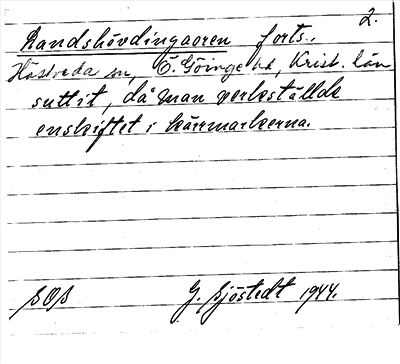 2.
Landshövdingaoren forts.
Hästveda sn, Ö. Göinge hd, Krist. län
suttit, då man verkställde
enskiftet i kärrmarkerna.
SOS G. Sjöstedt 1944.